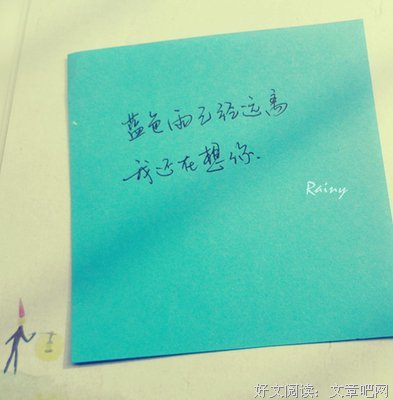 蓝色雨已经远离
我还在想你.
Rainy
好文阅读：文章吧网